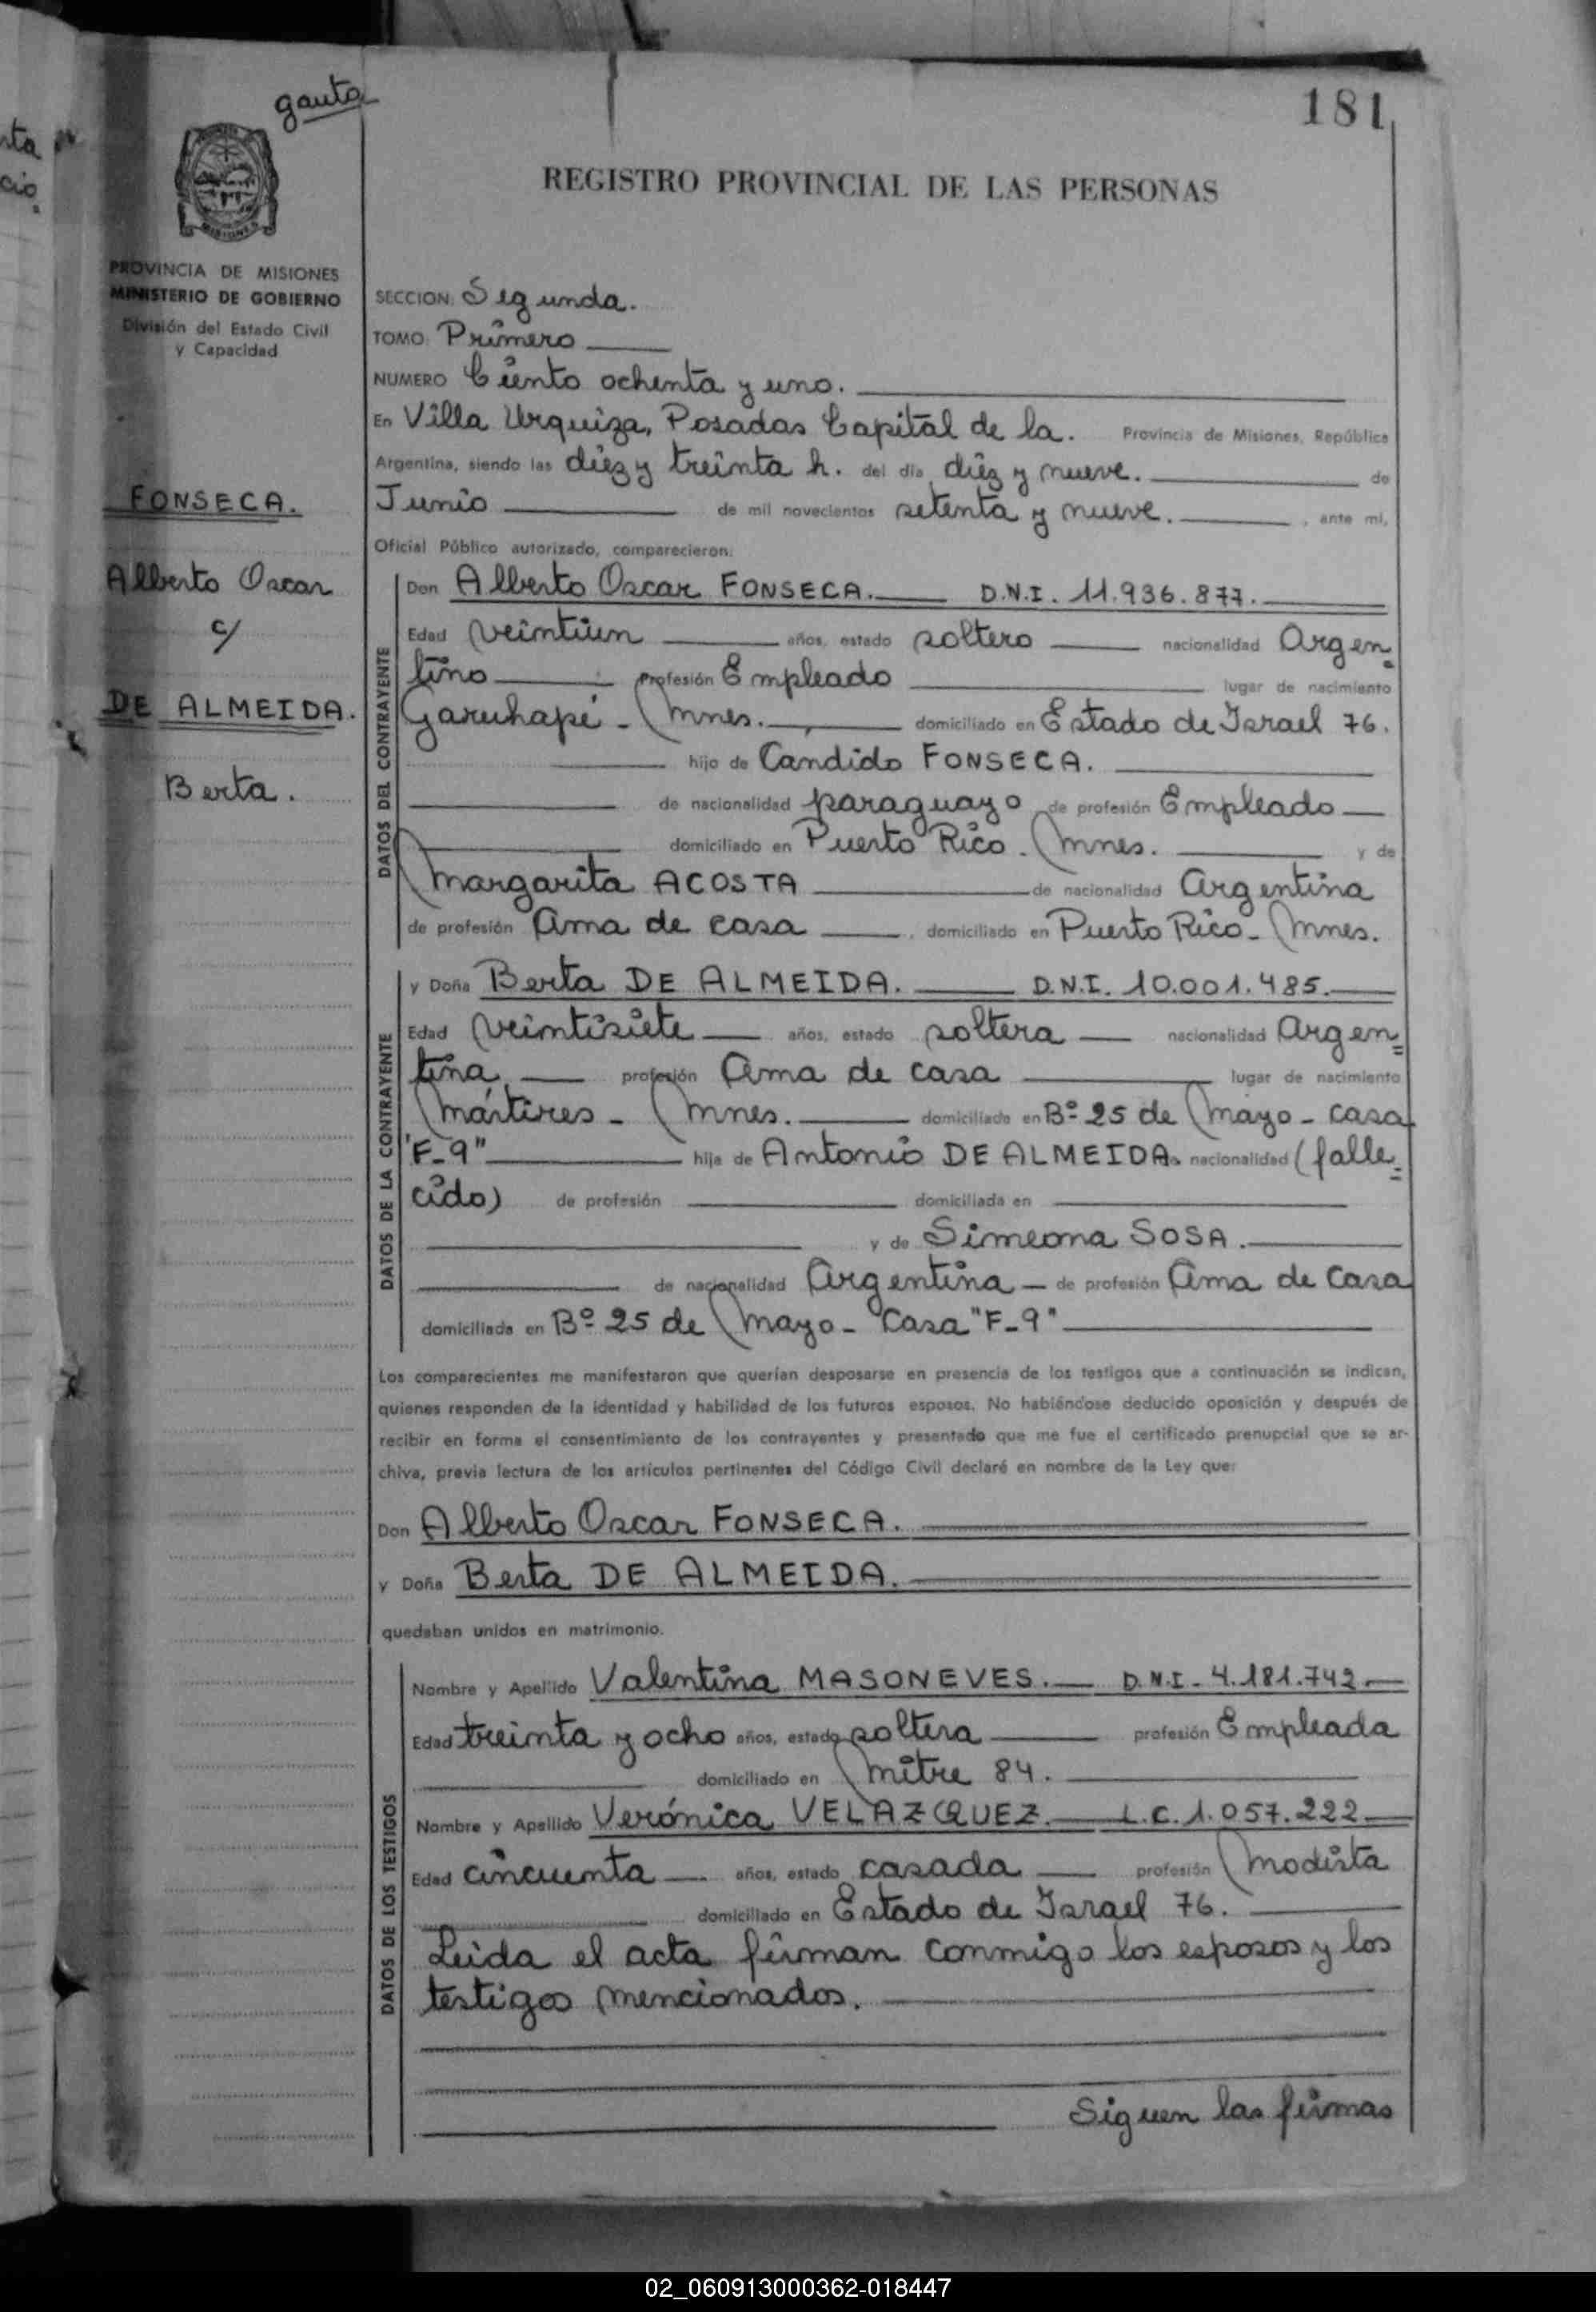 gauta
181
REGISTRO PROVINCIAL DE LAS PERSONAS
PROVINCIA DE MISIONES
MINISTERIO DE GOBIERNO
División del Estado Civil
y Capacidad
FONSECA.
Alberto Oscar
c/
DE ALMEIDA.
Berta.
SECCION: Segunda.
TOMO: Primero
NUMERO Ciento ochenta y uno.
En Villa Urquiza, Posadas Capital de la. Provincia de Misiones, República
Argentina, siendo las diez y treinta h. del día diez y nueve. de
Junio de mil novecientos setenta y nueve. , ante mi,
Oficial Público autorizado, comparecieron:
DATOS DEL CONTRAYENTE
Don Alberto Oscar FONSECA. D.N.I. 11.936.877.
Edad veintiun años, estado soltero nacionalidad Argen
tino profesión Empleado lugar de nacimiento
Garuhapé - Mnes. domiciliado en Estado de Israel 76.
hijo de Candido FONSECA.
de nacionalidad paraguayo de profesión Empleado
domiciliado en Puerto Rico. Mnes. y de
Margarita ACOSTA de nacionalidad Argentina
de profesión Ama de casa , domiciliado en Puerto Rico - Mnes.
DATOS DE LA CONTRAYENTE
y Doña Berta DE ALMEIDA. D.N.I. 10.001.485.
Edad veintisiete años, estado soltera nacionalidad Argen=
tina, profesión Ama de casa lugar de nacimiento
Mártires - Mnes. domiciliada en Bº 25 de Mayo - casa
"F-9" hija de Antonio DE ALMEIDA. nacionalidad (falle=
cido) de profesión domiciliada en
y de Simeona SOSA.
de nacionalidad Argentina - de profesión Ama de Casa
domiciliada en Bº 25 de Mayo - Casa "F-9"
Los comparecientes me manifestaron que querían desposarse en presencia de los testigos que a continuación se indican,
quienes responden de la identidad y habilidad de los futuros esposos. No habiéndose deducido oposición y después de
recibir en forma el consentimiento de los contrayentes y presentado que me fue el certificado prenupcial que se ar-
chiva, previa lectura de los artículos pertinentes del Código Civil declaré en nombre de la Ley que:
Don Alberto Oscar FONSECA.
y Doña Berta DE ALMEIDA.
quedaban unidos en matrimonio.
DATOS DE LOS TESTIGOS
Nombre y Apellido Valentina MASONEVES. D.N.I - 4.181.742
Edad treinta y ocho años, estado soltera profesión Empleada
domiciliado en Mitre 84.
Nombre y Apellido Verónica VELAZQUEZ. L.C. 1.057.222
Edad cincuenta años, estado casada profesión Modista
domiciliado en Estado de Israel 76.
Leida el acta firman conmigo los esposos y los
testigos mencionados.
Siguen las firmas
02_060913000362-018447